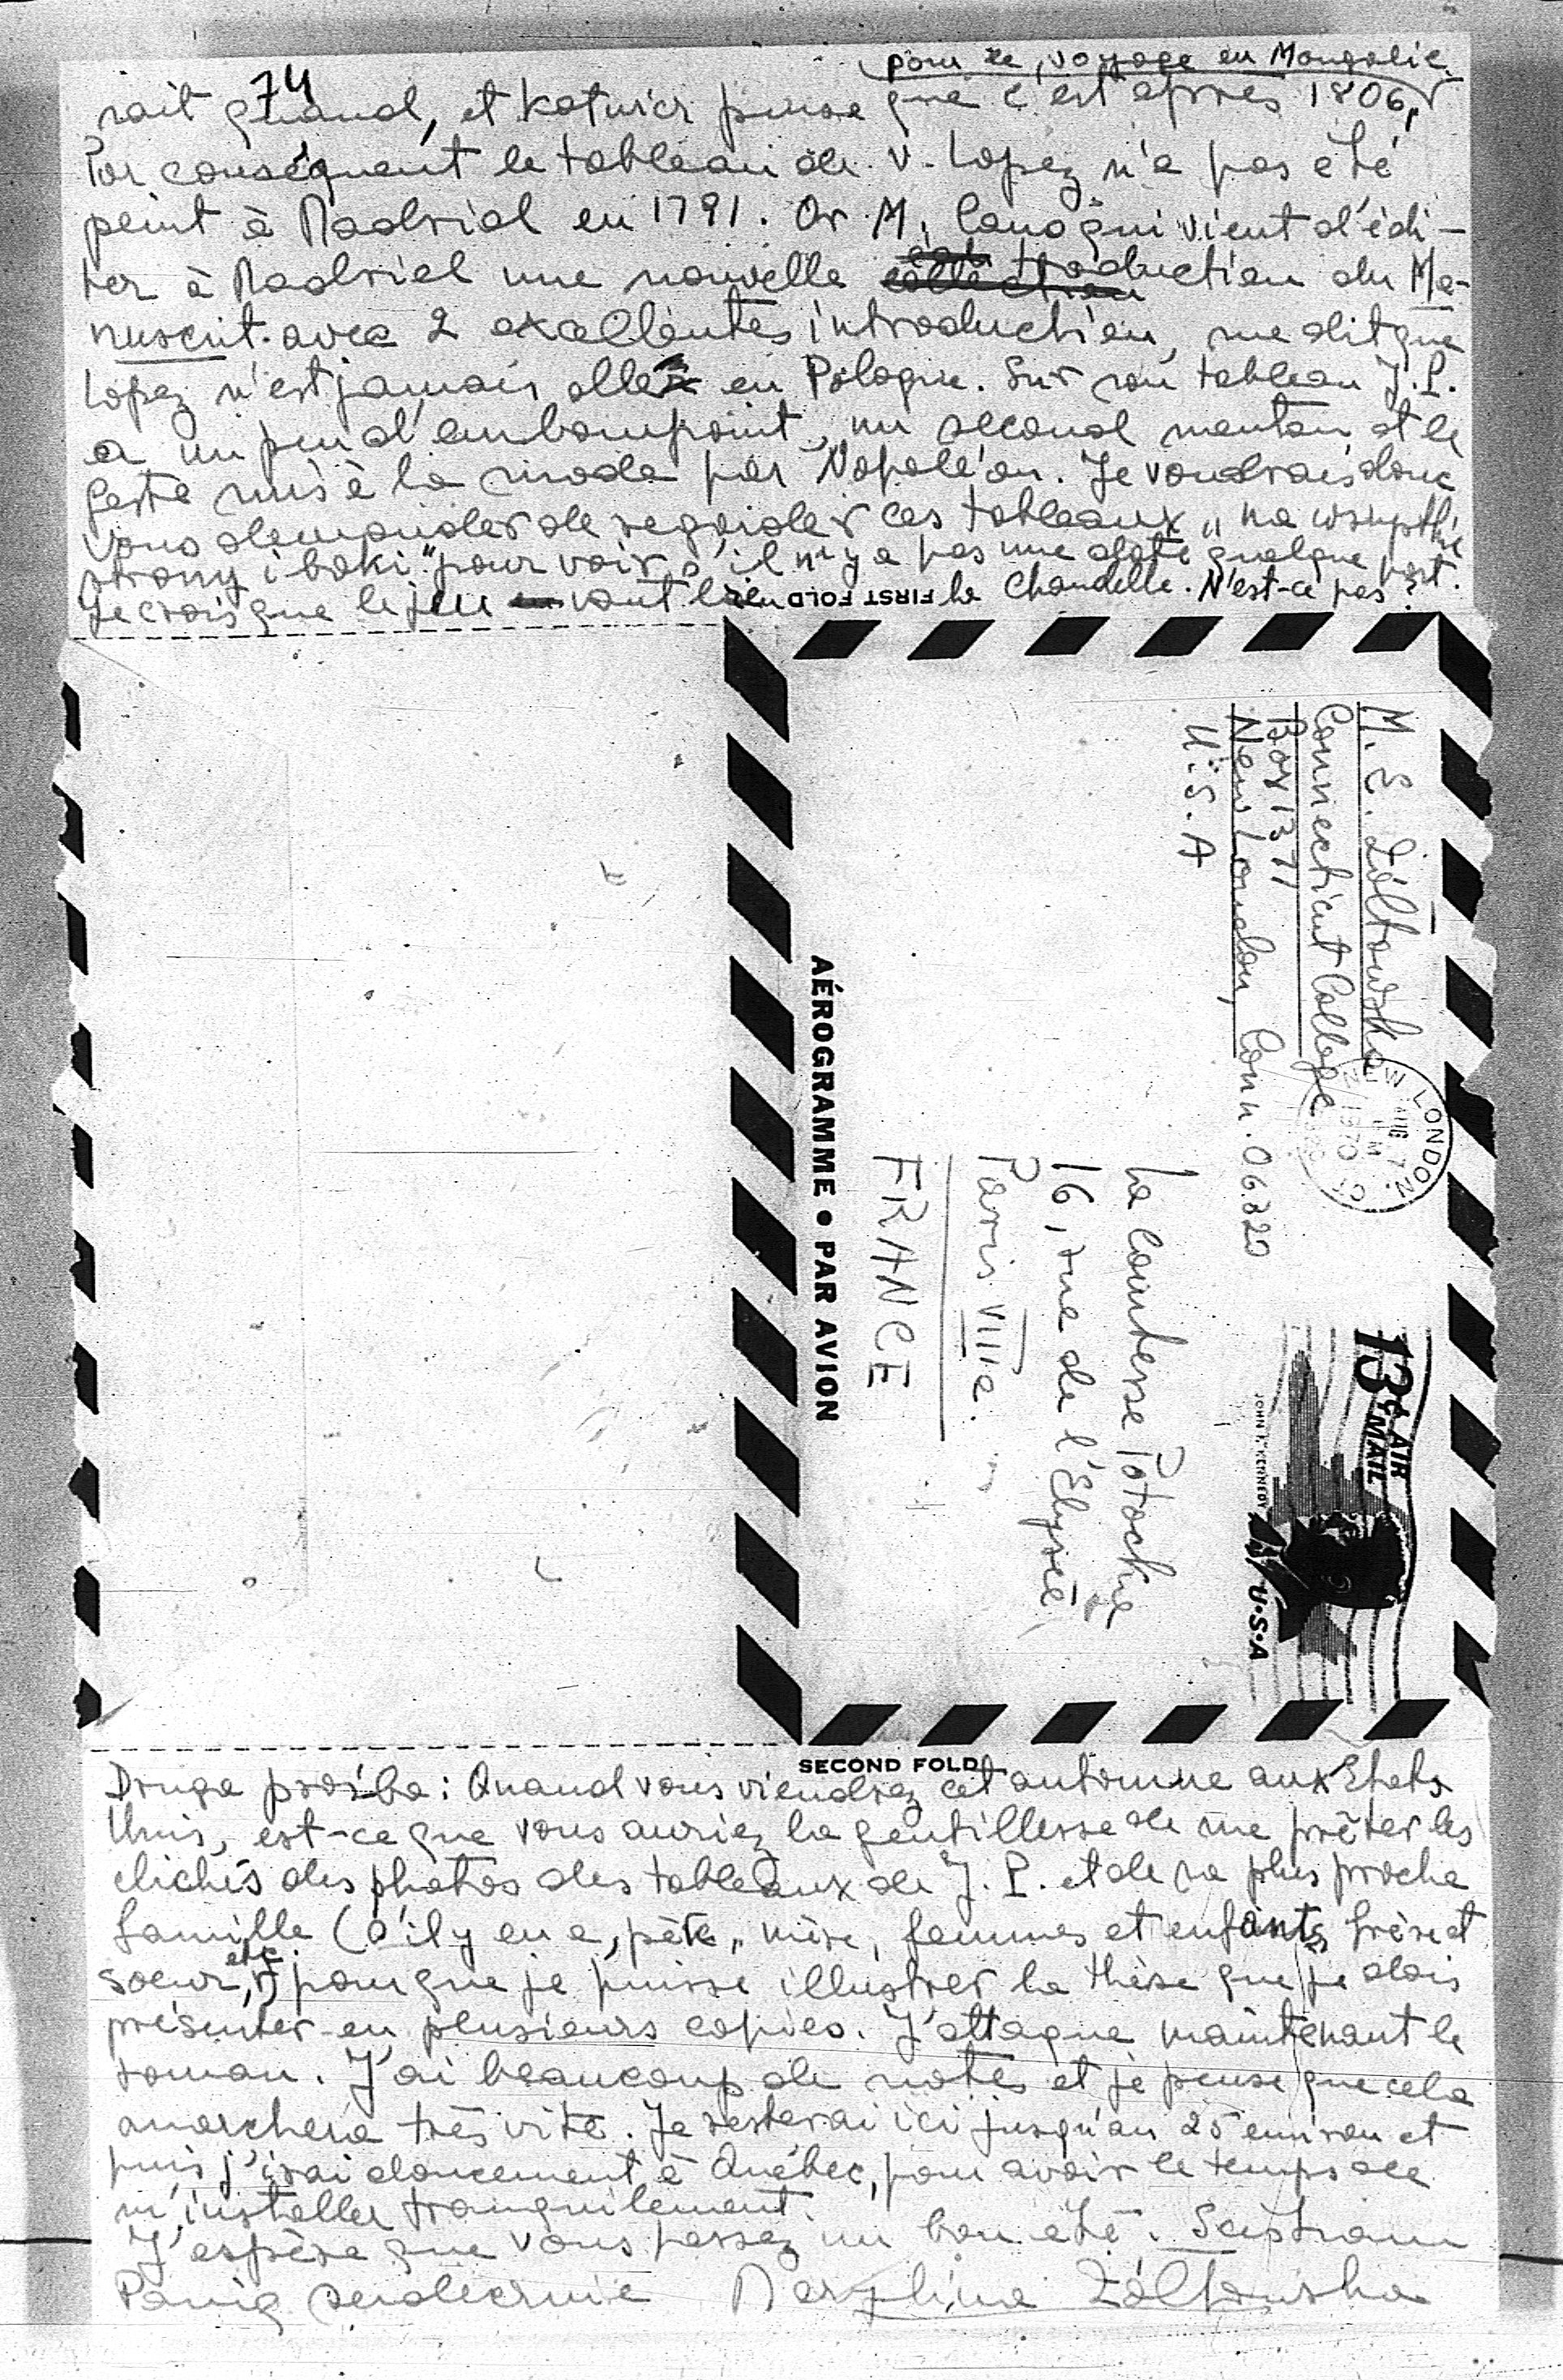 74
pour le voyage en Mongolie
rait grand, et Kotwicz pense que c'est après 1806,
Par conséquent le tableau de V. Lopez n'a pas été
peint à Madrid en 1791. Or M. Cano qui vient d'édi-
ter à Madrid une nouvelle traduction du Ma-
nuscrit avec 2 excellentes introduction, me dit que
Lopez n'est jamais allé en Pologne. Sur son tableau J.P.
a un peu d'embonpoint, un second menton et le
geste mis à la mode par Napoléon. Je voudrais donc
vous demander de regarder ces tableaux „na wszystkie
strony i boki" pour voir s'il n'y a pas une date quelque part.
Je crois que le jeu vaut bien la chandelle. N'est-ce pas?
FIRST FOLD
M. E. Żółtowska
Connecticut College
Box 1371
New London, Conn. 06320
U.S.A
NEW LONDON, CT
AUG 7
PM
1970
13¢ AIR MAIL
JOHN F. KENNEDY
U·S·A
La Comtesse Potocka
16, rue de l'Elysée
Paris VIIIe.
FRANCE
AÉROGRAMME • PAR AVION
SECOND FOLD
Druga prośba: Quand vous viendrez cet automne aux Etats
Unis, est-ce que vous auriez la gentillesse de me prêter les
clichés des photos des tableaux de J. P. et de sa plus proche
famille (s'il y en a, père, mère, femmes et enfants, frère et
soeur, etc.) pour que je puisse illustrer la thèse que je dois
présenter en plusieurs copies. J'attaque maintenant le
roman. J'ai beaucoup de notes et je pense que cela
marchera très vite. Je resterai ici jusqu'au 25 environ et
puis j'irai doucement à Québec, pour avoir le temps de
m'installer tranquilement.
J'espère que vous passez un bon été. Sciskam
Panią serdecznie Marylina Żółtowska